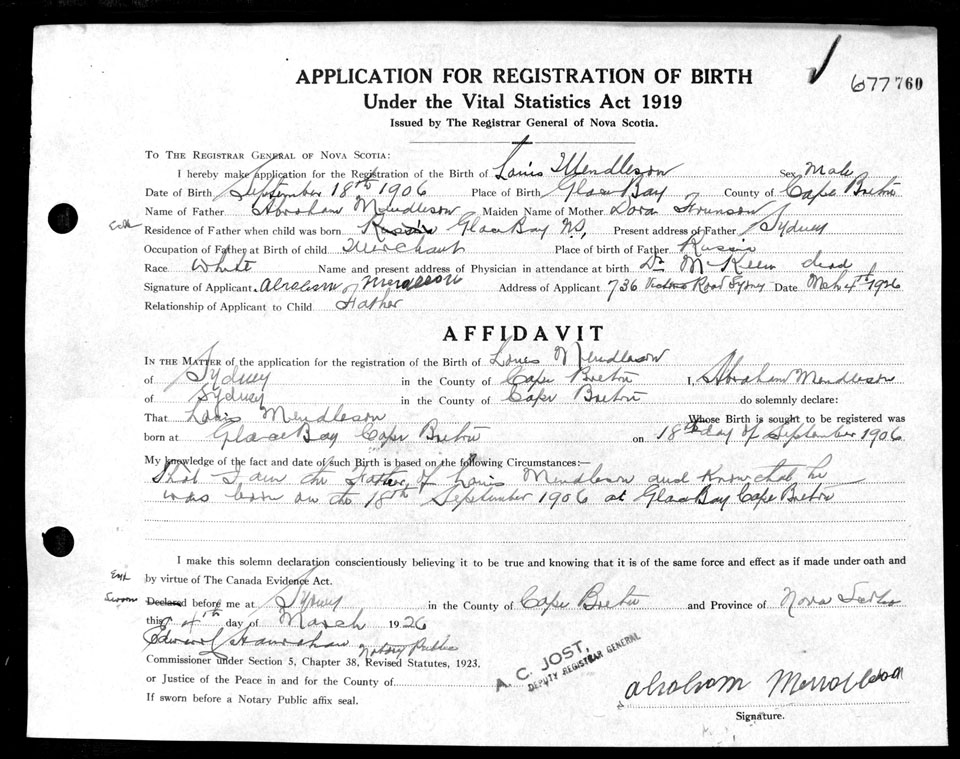 677760
APPLICATION FOR REGISTRATION OF BIRTH
Under the Vital Statistics Act 1919
Issued by The Registrar General of Nova Scotia.
To The Registrar General of Nova Scotia:
I hereby make application for the Registration of the Birth of Louis Mendleson Sex Male
Date of Birth September 18th 1906 Place of Birth Glace Bay County of Cape Breton
Name of Father Abraham Mendleson Maiden Name of Mother Dora
Residence of Father when child was born Russia Glace Bay N.S. Present address of Father Sydney
Occupation of Father at Birth of child Merchant Place of birth of Father Russia
Race White Name and present address of Physician in attendance at birth Dr McKeen dead
Signature of Applicant Address of Applicant 736 Victoria Road Sydney Date Mch 4th 1926
Relationship of Applicant to Child Father
AFFIDAVIT
In the Matter of the application for the registration of the Birth of Louis Mendleson
of Sydney in the County of Cape Breton I, Abraham Mendleson
of Sydney in the County of Cape Breton do solemnly declare:
That Louis Mendleson Whose Birth is sought to be registered was
born at Glace Bay Cape Breton on 18th day of September 1906
My knowledge of the fact and date of such Birth is based on the following Circumstances:—
That I am the Father of Louis Mendleson and know that he
was born on the 18th September 1906 at Glace Bay Cape Breton
I make this solemn declaration conscientiously believing it to be true and knowing that it is of the same force and effect as if made under oath and
by virtue of The Canada Evidence Act.
Sworn Declared before me at Sydney in the County of Cape Breton and Province of Nova Scotia
this 4th day of March 1926
Edward Notary Public
Commissioner under Section 5, Chapter 38, Revised Statutes, 1923.
or Justice of the Peace in and for the County of
If sworn before a Notary Public affix seal.
A. C. JOST,
DEPUTY REGISTRAR GENERAL
Abraham
Signature.